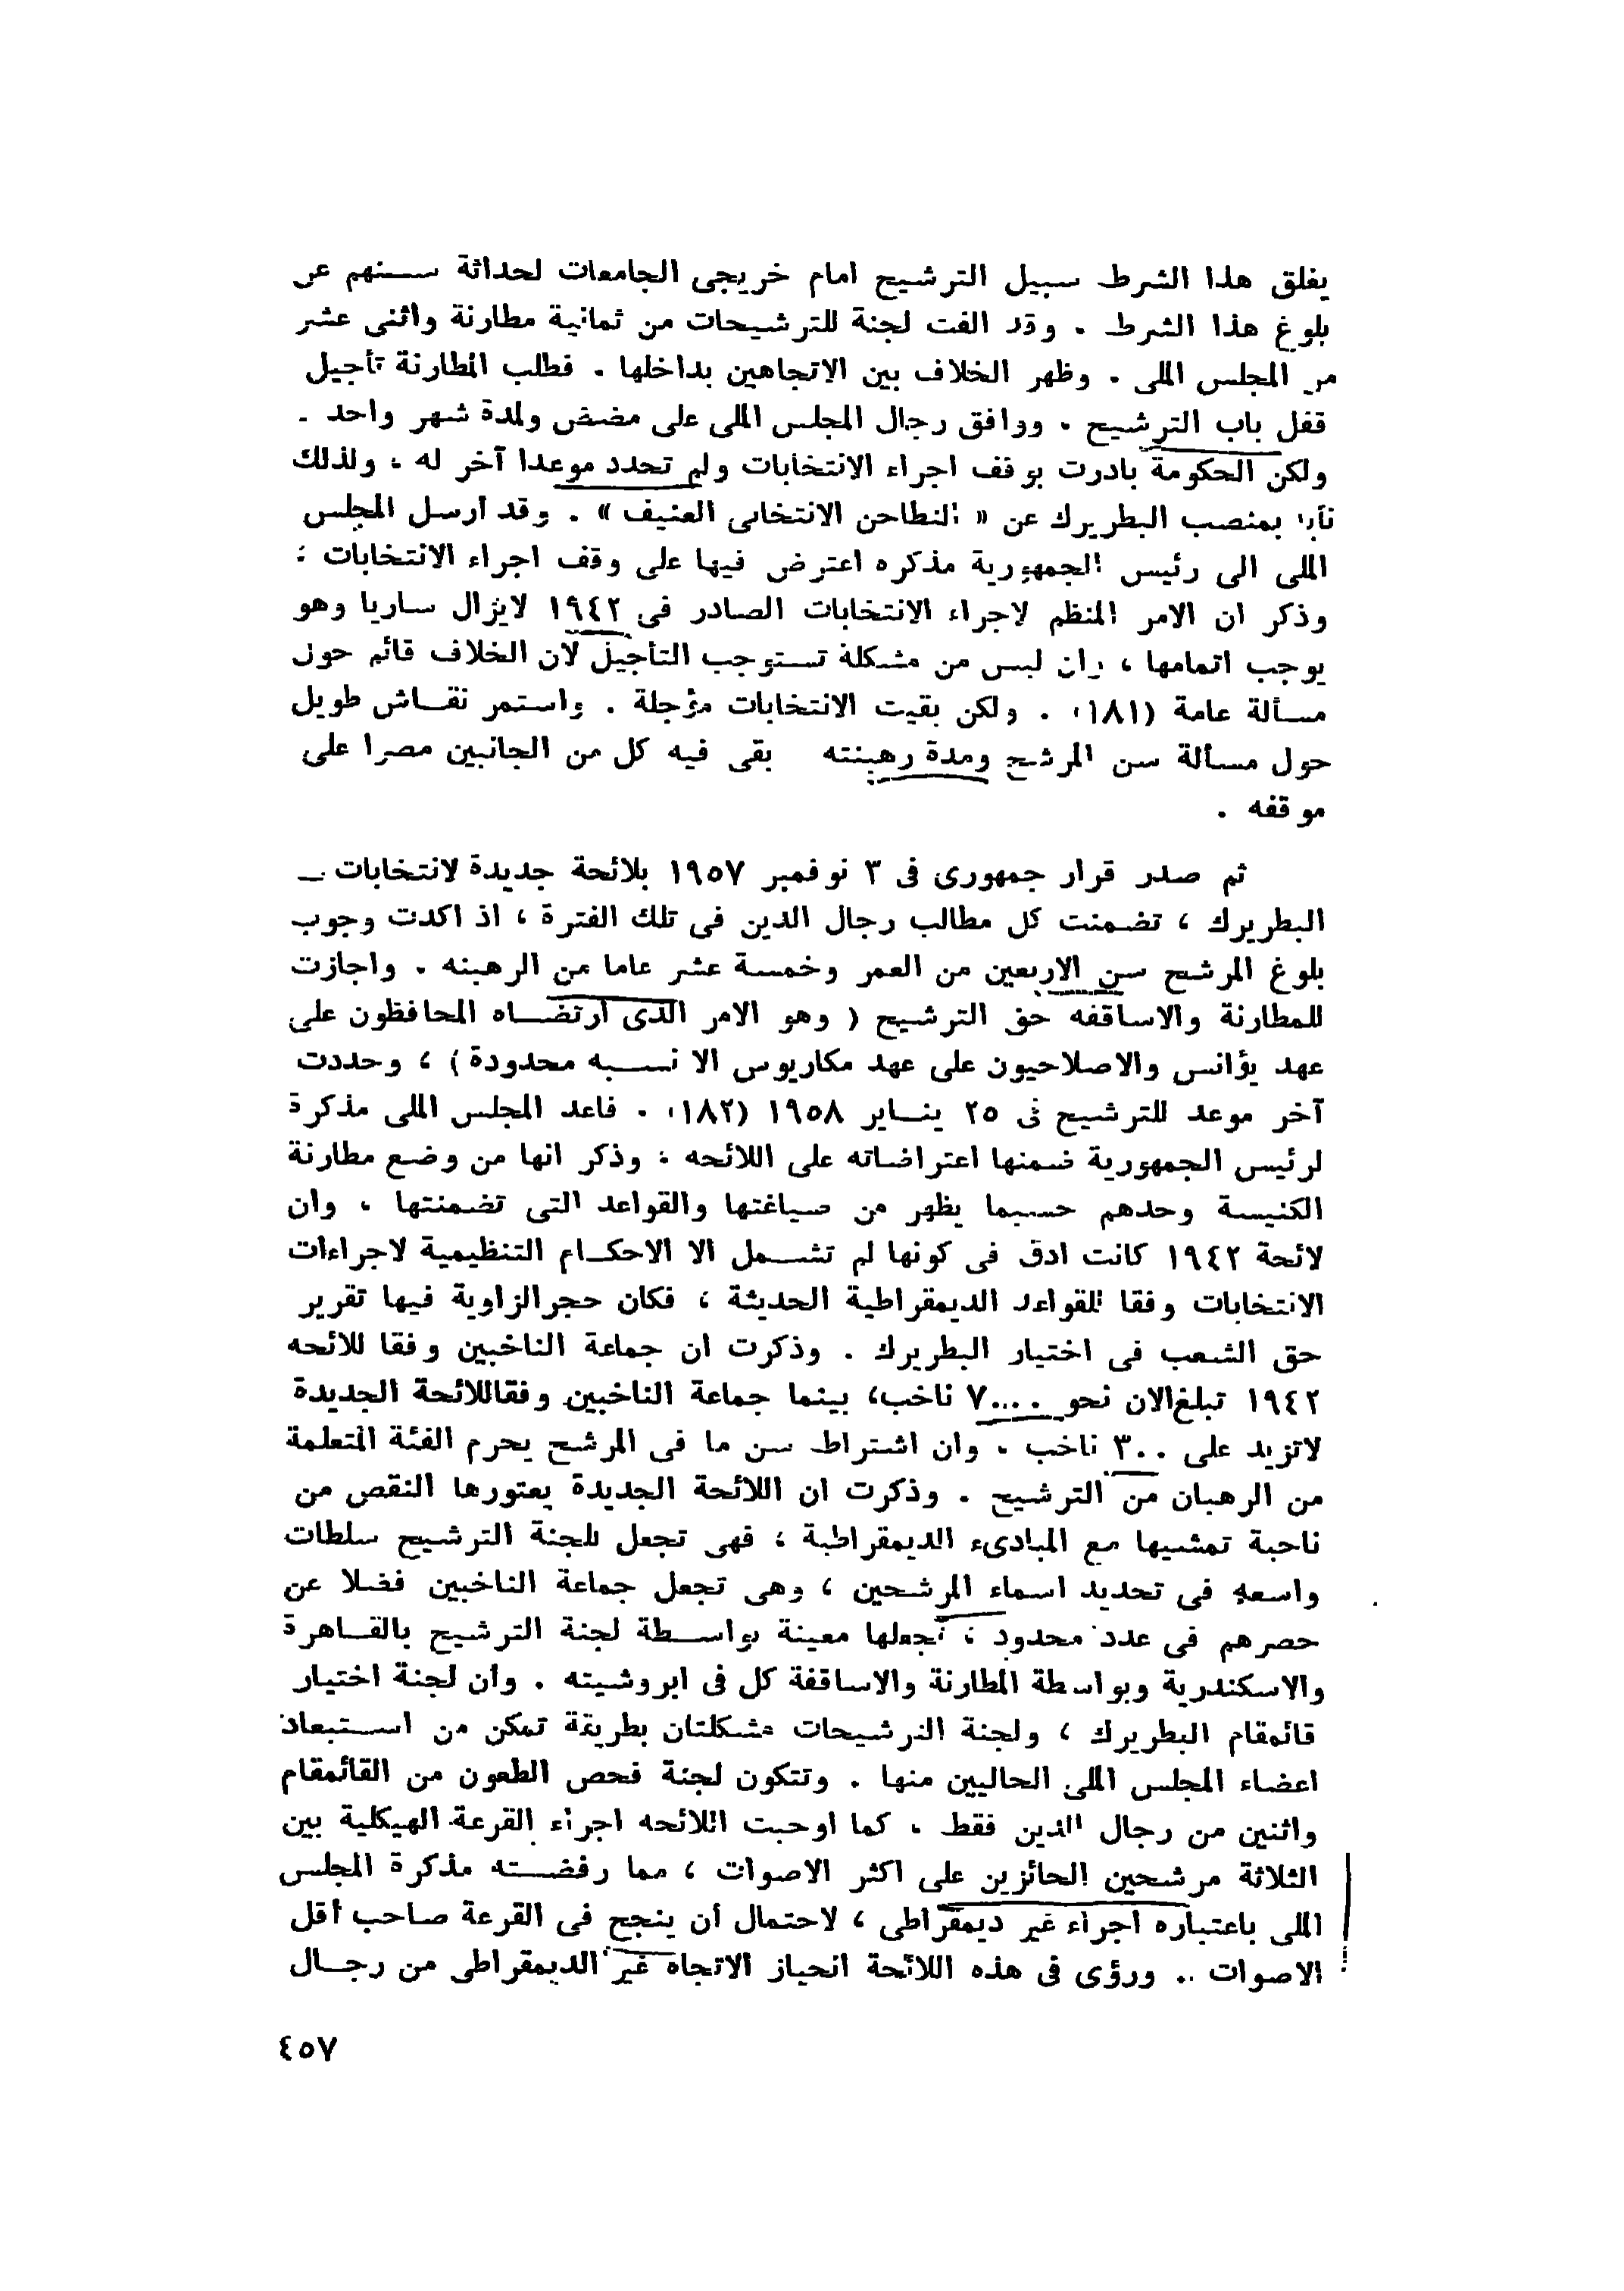 يغلق هذا الشرط سبيل الترشيح امام خريجى الجامعات لحداثة سنهم عن
بلوغ هذا الشرط . وقد الفت لجنة للترشيحات من ثمانية مطارنة واثنى عشر
من المجلس الملى . وظهر الخلاف بين الاتجاهين بداخلها . فطلب المطارنة تأجيل
قفل باب الترشيح . ووافق رجال المجلس الملى على مضض ولمدة شهر واحد .
ولكن الحكومة بادرت بوقف اجراء الانتخابات ولم تحدد موعدا آخر له ، ولذلك
نأيا بمنصب البطريرك عن « التطاحن الانتخابى العنيف » . وقد أرسل المجلس
الملى الى رئيس الجمهورية مذكره اعترض فيها على وقف اجراء الانتخابات ؛
وذكر ان الامر المنظم لاجراء الانتخابات الصادر فى ١٩٤٢ لايزال ساريا وهو
يوجب اتمامها ، وان ليس من مشكلة تستوجب التأجيل لان الخلاف قائم حول
مسألة عامة (١٨١) . ولكن بقيت الانتخابات مؤجلة . واستمر نقاش طويل
حول مسألة سن المرشح ومدة رهبنته بقى فيه كل من الجانبين مصرا على
موقفه .
ثم صدر قرار جمهورى فى ٣ نوفمبر ١٩٥٧ بلائحة جديدة لانتخابات
البطريرك ، تضمنت كل مطالب رجال الدين فى تلك الفترة ، اذ اكدت وجوب
بلوغ المرشح سن الاربعين من العمر وخمسة عشر عاما من الرهبنه . واجازت
للمطارنة والاساقفه حق الترشيح ( وهو الامر الذى ارتضاه المحافظون على
عهد يؤانس والاصلاحيون على عهد مكاريوس الا نسبه محدودة ) ، وحددت
آخر موعد للترشيح فى ٢٥ يناير ١٩٥٨ (١٨٢) . فاعد المجلس الملى مذكرة
لرئيس الجمهورية ضمنها اعتراضاته على اللائحه ؛ وذكر انها من وضع مطارنة
الكنيسة وحدهم حسبما يظهر من صياغتها والقواعد التى تضمنتها ، وان
لائحة ١٩٤٢ كانت ادق فى كونها لم تشمل الا الاحكام التنظيمية لاجراءات
الانتخابات وفقا للقواعد الديمقراطية الحديثة ، فكان حجرالزاوية فيها تقرير
حق الشعب فى اختيار البطريرك . وذكرت ان جماعة الناخبين وفقا للائحه
١٩٤٢ تبلغ‌الان نحو ٧٠٠٠ ناخب، بينما جماعة الناخبين وفقاللائحة الجديدة
لاتزيد على ٣٠٠ ناخب ، وان اشتراط سن ما فى المرشح يحرم الفئة المتعلمة
من الرهبان من الترشيح . وذكرت ان اللائحة الجديدة يعتورها النقص من
ناحية تمشيها مع المبادىء الديمقراطية ؛ فهى تجعل للجنة الترشيح سلطات
واسعه فى تحديد اسماء المرشحين ، وهى تجعل جماعة الناخبين فضلا عن
حصرهم فى عدد محدود ، تجعلها معينة بواسطة لجنة الترشيح بالقاهرة
والاسكندرية وبواسطة المطارنة والاساقفة كل فى ابروشيته . وان لجنة اختيار
قائمقام البطريرك ، ولجنة الترشيحات مشكلتان بطريقة تمكن من استبعاد
اعضاء المجلس الملى الحاليين منها . وتتكون لجنة فحص الطعون من القائمقام
واثنين من رجال الدين فقط ، كما اوجبت اللائحه اجراء القرعة الهيكلية بين
الثلاثة مرشحين الحائزين على اكثر الاصوات ، مما رفضته مذكرة المجلس
الملى باعتباره اجراء غير ديمقراطى ، لاحتمال أن ينجح فى القرعة صاحب أقل
الاصوات .. ورؤى فى هذه اللائحة انحياز الاتجاه غير الديمقراطى من رجال
٤٥٧